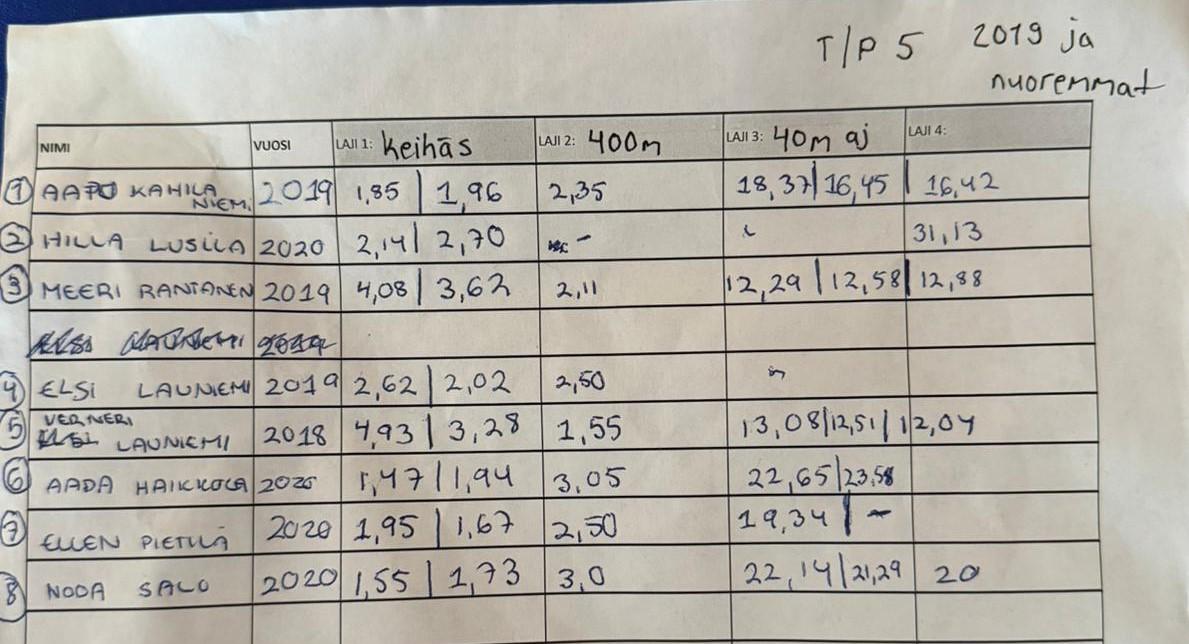 T/P 5 2019 ja
nuoremmat
NIMI VUOSI LAJI 1: Keihäs LAJI 2: 400m LAJI 3: 40m aj LAJI 4:
1 AAPO KAHILA NIEMI 2019 1,85 | 1,96 2,35 18,37 | 16,45 | 16,42
2 HILLA LUSILA 2020 2,14 | 2,70 - 31,13
3 MEERI RANTANEN 2019 4,08 | 3,62 2,11 12,29 | 12,58 | 12,88
4 ELSI LAUNIEMI 2019 2,62 | 2,02 2,50
5 VERNERI LAUNIEMI 2018 4,93 | 3,28 1,55 13,08 | 12,51 | 12,04
6 AADA HAIKKOLA 2020 1,47 | 1,94 3,05 22,65 | 23,58
7 ELLEN PIETILÄ 2020 1,95 | 1,67 2,50 19,34 | -
8 NOOA SALO 2020 1,55 | 1,73 3,0 22,14 | 21,29 20